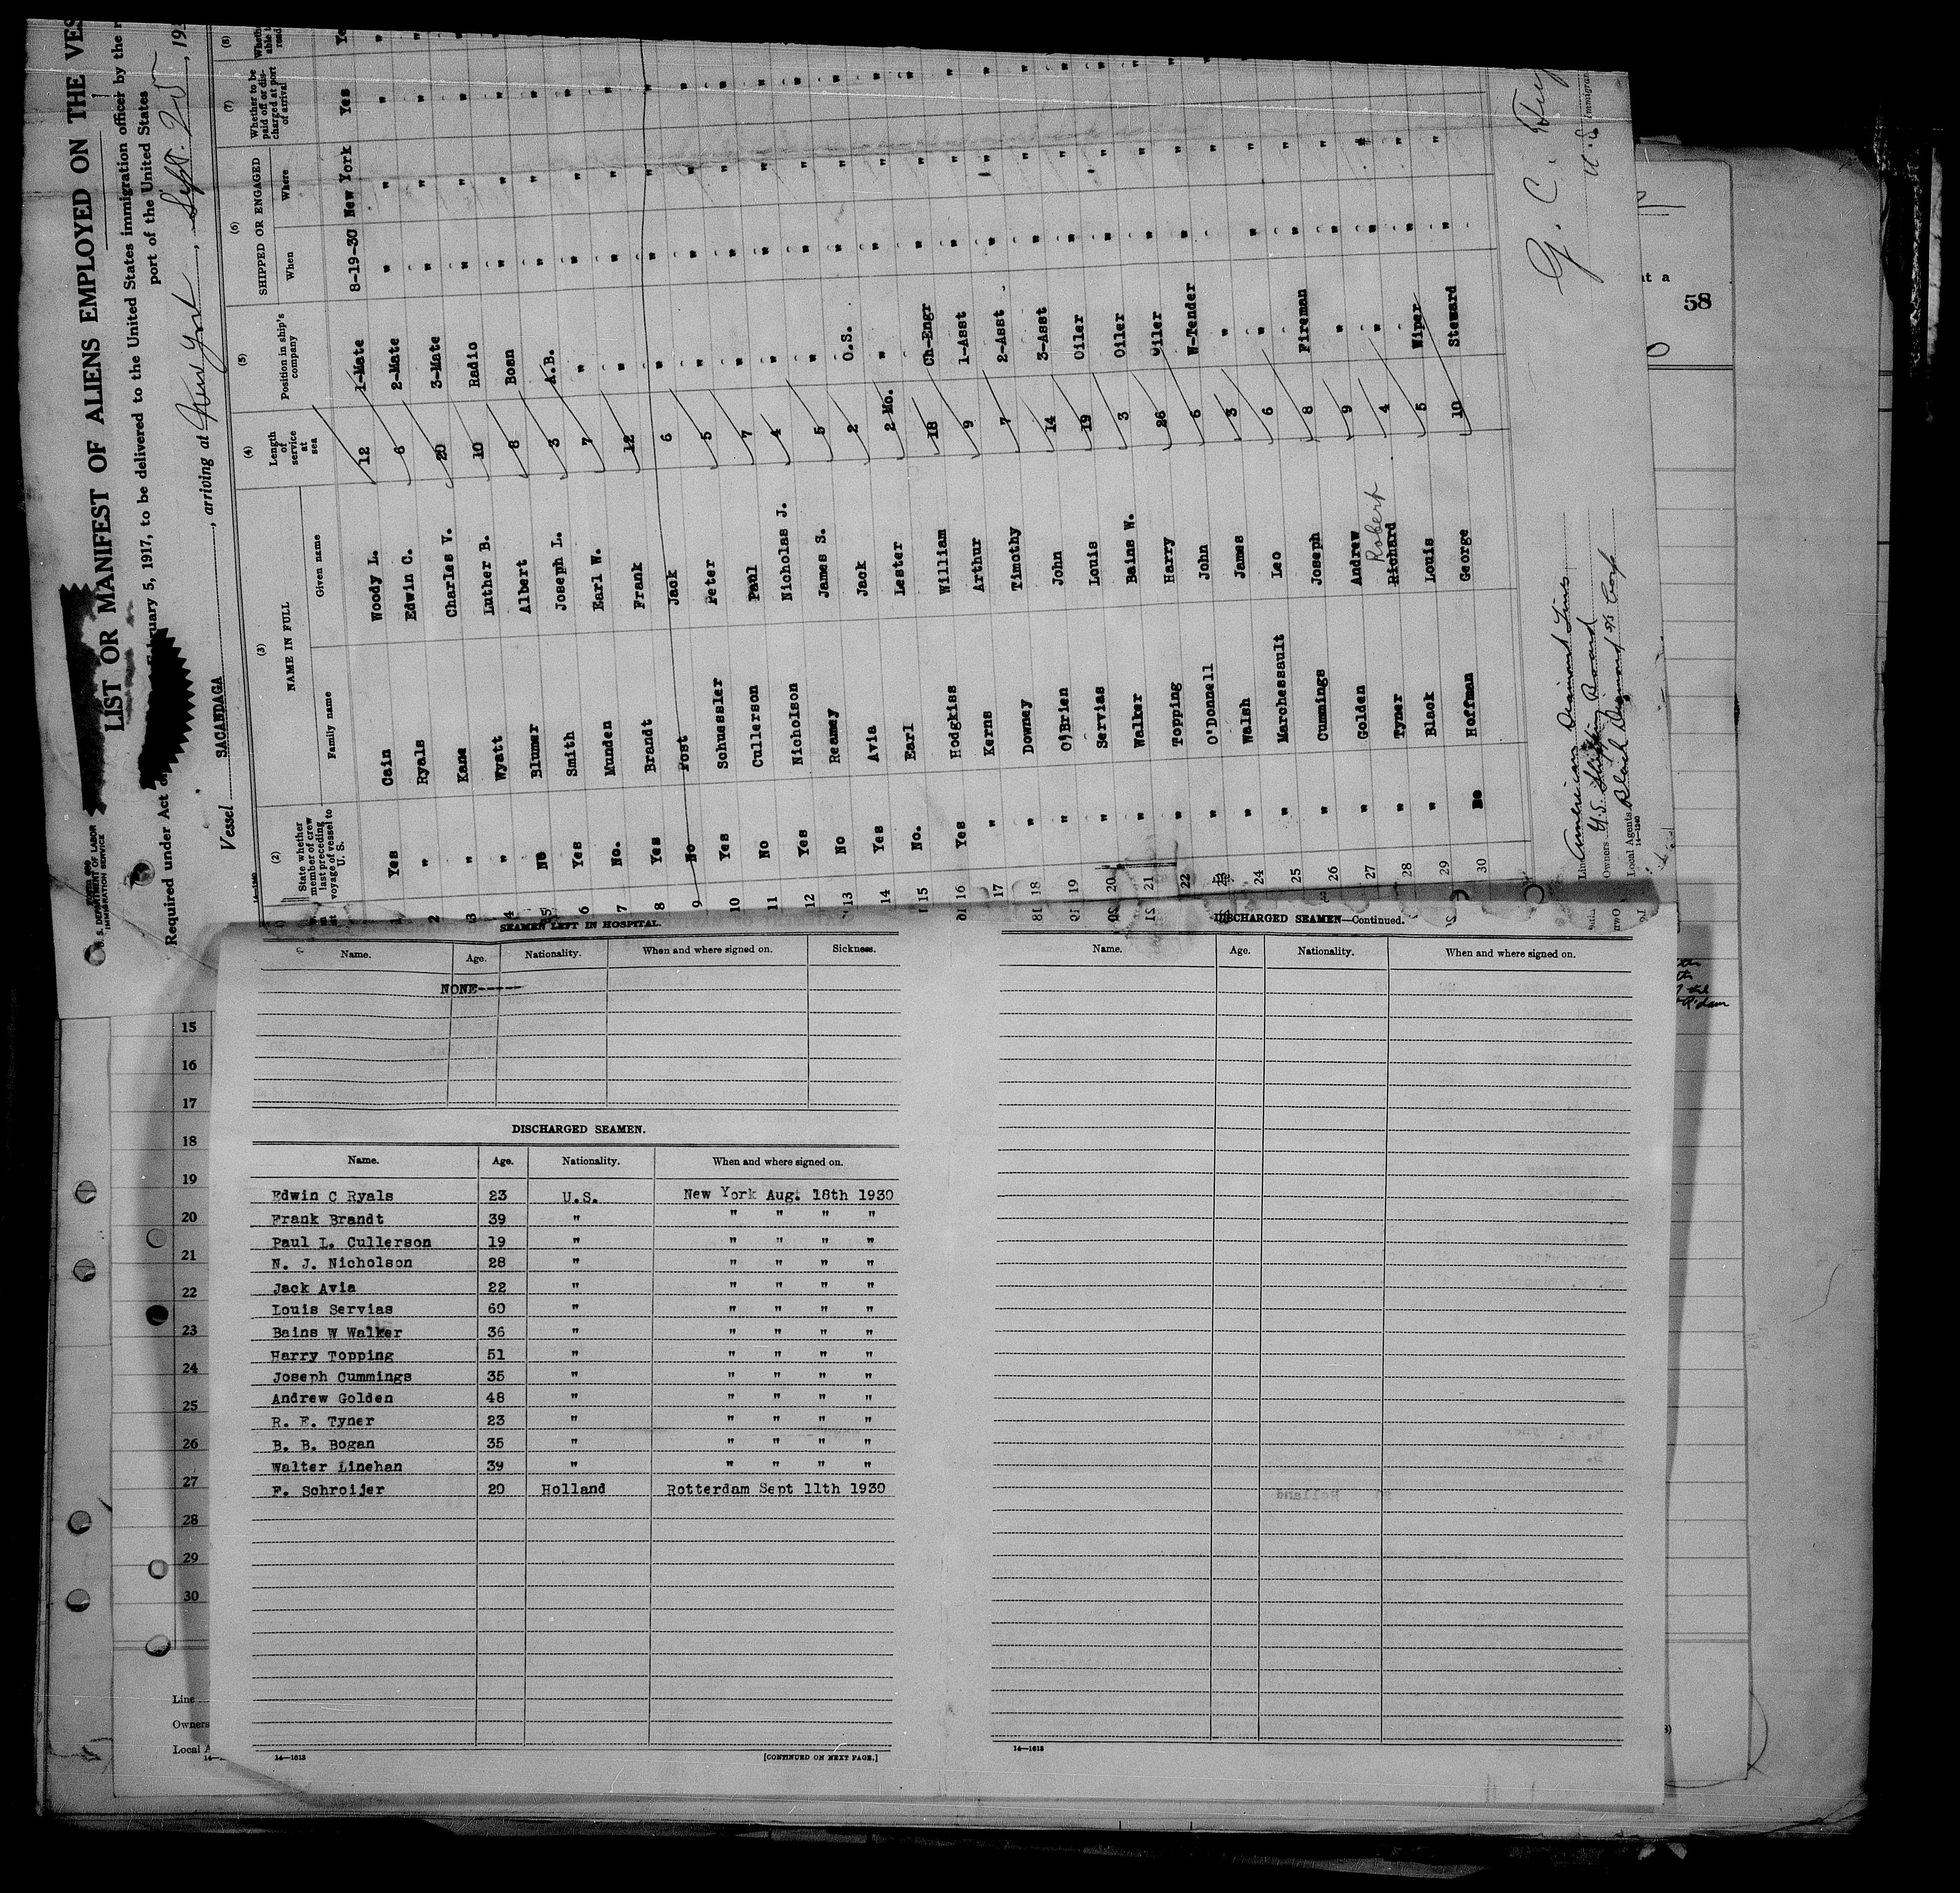 FORM 680
U. S. DEPARTMENT OF LABOR
IMMIGRATION SERVICE
LIST OR MANIFEST OF ALIENS EMPLOYED ON THE VES
Required under Act of February 5, 1917, to be delivered to the United States immigration officer by the
port of the United States
Vessel SACANDAGA, arriving at New York, Sept.
14-1240
(2) (3) (4) (5) (6) (7) (8)
State whether member of crew last preceding voyage of vessel to U. S.
NAME IN FULL
Family name Given name
Length of service at sea
Position in ship's company
SHIPPED OR ENGAGED
When Where
Whether to be paid off or discharged at port of arrival
1 Yes Cain Woody L. 12 1-Mate 8-19-30 New York Yes
2 " Ryals Edwin C. 6 2-Mate " " "
3 " Kane Charles V. 20 3-Mate " " "
4 " Wyatt Luther B. 10 Radio " " "
5 No Blumer Albert 8 Bosn " " "
6 Yes Smith Joseph L. 3 A.B. " " "
7 No. Munden Earl W. 7 " " " "
8 Yes Brandt Frank 12 " " " "
9 No Post Jack 6 " " " "
10 Yes Schuessler Peter 5 " " " "
11 No Cullerson Paul 7 " " " "
12 Yes Nicholson Nicholas J. 4 " " " "
13 No Reamey James S. 5 " " " "
14 Yes Avia Jack 2 O.S. " " "
15 No. Earl Lester 2 Mo. " " " "
16 Yes Hodgkiss William 18 Ch-Engr " " "
17 " Kerns Arthur 9 1-Asst " " "
18 " Downey Timothy 7 2-Asst " " "
19 " O'Brien John 14 3-Asst " " "
20 " Servias Louis 19 Oiler " " "
21 " Walker Bains W. 3 Oiler " " "
22 " Topping Harry 26 Oiler " " "
23 " O'Donnell John 6 W-Tender " "
24 " Walsh James 3 " "
25 " Marchessault Leo 6 " " "
26 " Cummings Joseph 8 Fireman " "
27 " Golden Andrew 9 " " "
28 " Tyner Richard Robert 4 " " "
29 " Black Louis 5 Wiper " "
30 No Hoffman George 10 Steward " "
Line American Diamond Lines
Owners U.S. Shipping Board
Local Agents Black Diamond S/S Corp
14-1240
G. C.
58
SEAMEN LEFT IN HOSPITAL.
Name. Age. Nationality. When and where signed on. Sickness.
NONE-----
DISCHARGED SEAMEN.
Name. Age. Nationality. When and where signed on.
Edwin C Ryals 23 U.S. New York Aug. 18th 1930
Frank Brandt 39 " " " " "
Paul L. Cullerson 19 " " " " "
N. J. Nicholson 28 " " " " "
Jack Avia 22 " " " " "
Louis Servias 60 " " " " "
Bains W Walker 36 " " " " "
Harry Topping 51 " " " " "
Joseph Cummings 35 " " " " "
Andrew Golden 48 " " " " "
R. E. Tyner 23 " " " " "
B. B. Bogan 35 " " " " "
Walter Linehan 39 " " " " "
F. Schroijer 20 Holland Rotterdam Sept 11th 1930
14—1613
[CONTINUED ON NEXT PAGE.]
DISCHARGED SEAMEN—Continued.
Name. Age. Nationality. When and where signed on.
14—1613
15
16
17
18
19
20
21
22
23
24
25
26
27
28
29
30
Line
Owners
Local A